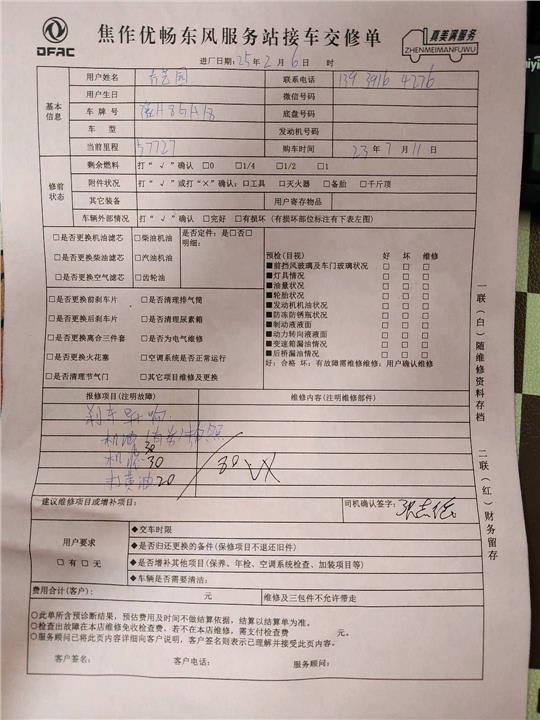 DFAC
焦作优畅东风服务站接车交修单
真美满服务
ZHENMEIMANFUWU
进厂日期：25年2月6日 时
基本信息
用户姓名
联系电话 139 3916 4276
用户生日
微信号码
车牌号
底盘号码
车型
发动机号码
当前里程 57727
购车时间 23年7月11日
修前状态
剩余燃料 打“√”确认 □0 □1/4 □1/2 □1
附件状况 打“√”或打“×”确认：□工具 □灭火器 □备胎 □千斤顶
其它装备
用户寄存物品
车辆外部情况 □完好 □有损坏（有损坏部位标注有下表左图）
□是否更换机油滤芯 □柴油机油
□是否更换柴油滤芯 □汽油机油
□是否更换空气滤芯 □齿轮油
是否定件：是□否□
明细：
□是否更换前刹车片 □是否清理排气筒
□是否更换后刹车片 □是否清理尿素箱
□是否更换离合三件套 □是否为电气维修
□是否更换火花塞 □空调系统是否正常运行
□是否清理节气门 □其它项目维修及更换
预检(目视) 好 坏 维修
■前挡风玻璃及车门玻璃状况 □ □ □
■灯具情况 □ □ □
■油量状况 □ □ □
■轮胎状况 □ □ □
■发动机机油状况 □ □ □
■防冻防锈瓶状况 □ □ □
■制动液液面 □ □ □
■动力转向液液面 □ □ □
■变速箱漏油情况 □ □ □
■后桥漏油情况 □ □ □
好：合格 坏：有故障需维修维修：用户确认维修
报修项目(注明故障)
维修内容(注明维修部件)
刹车异响
机油
30
机滤 30
打黄油 20
80
建议维修项目或增补项目：
司机确认签字：
用户要求
□有 □无
◆交车时限
◆是否归还更换的备件(保修项目不退还旧件)
◆是否增补其他项目(保养、年检、空调系统检查、加装项目等)
◆车辆是否需要清洁：
费用合计(客户)： 元
维修及三包件不允许带走
○此单所含预诊断结果，预估费用及时间不做结算依据，结算以结算单为准。
○检查出故障在本店维修免收检查费，若不在本店维修，需支付检查费 元。
○服务顾问已将此页内容详细向客户说明，客户签名则表示已理解并接受此页内容。
客户签名： 客户电话： 服务顾问：
一联（白）随维修资料存档
二联（红）财务留存